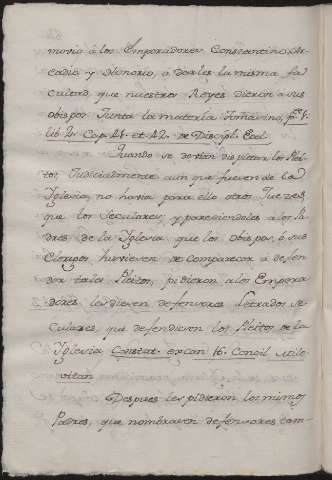 movio à los Emperadores, Constantino, Ar-
cadio y Honorio, à darles la misma fa
cultad que nuestros Reyes dieron a sus
obispos Junta la materia Tomasino, p.e 1.
lib. 2. Cap. 41. et 42. de Discipl. Eccl.
Quando se devian disputar los Plei
tos, Judicialmente aun que fuesen de la
Yglesia, no havia para ello otros Juezes,
que los seculares, y pareciendoles a los Pa
dres de la Yglesia que los obispos, ò sus
Clerigos huviesen de comparecer à defen
der tales Pleitos, pidieron a los Empera
dores, les diesen defensores letrados se
culares, que defendiesen los Pleitos de la
Yglesia Constat. ex can 16. Concil Mile-
vitan
Despues les pidieron los mismos
Padres, que nombrasen defensores tam-